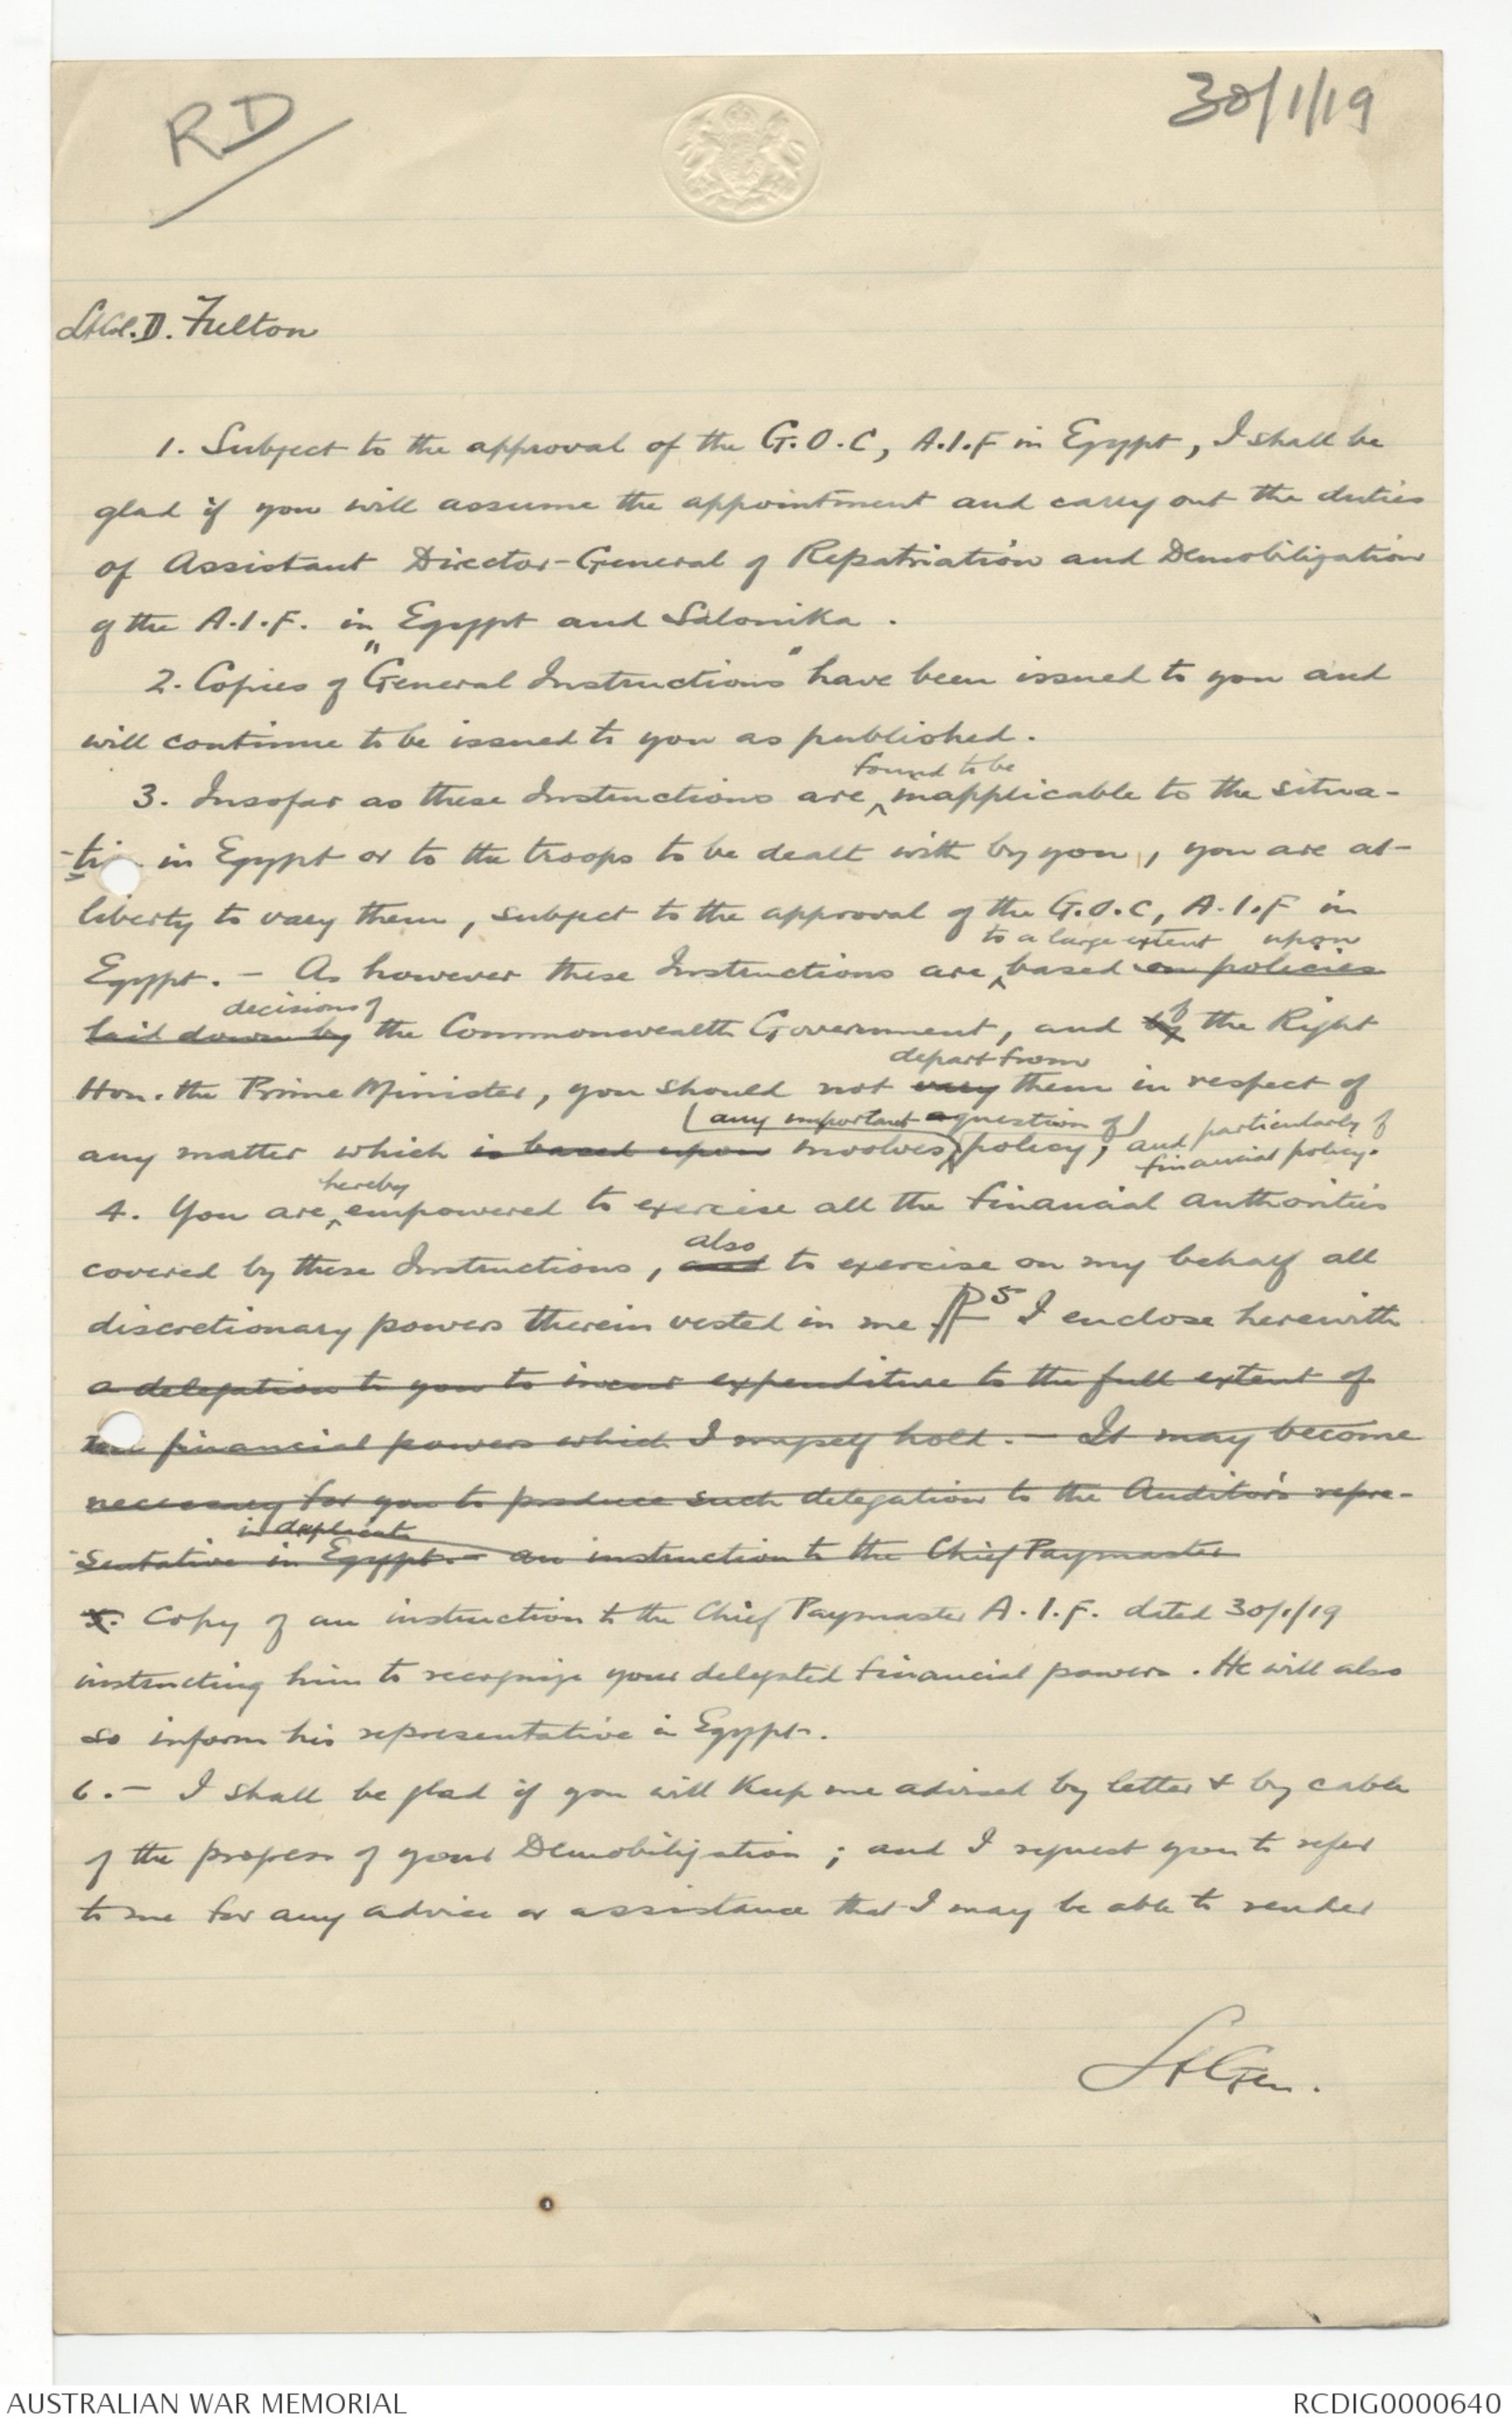 RD
30/1/19
Lt Col. D. Fulton
1. Subject to the approval of the G.O.C, A.I.F in Egypt, I shall be
glad if you will assume the appointment and carry out the duties
of Assistant Director-General of Repatriation and Demobilization
of the A.I.F. in Egypt and Salonika.
2. Copies of "General Instructions" have been issued to you and
will continue to be issued to you as published.
found to be
3. Insofar as these Instructions are ^ inapplicable to the situa-
-tion in Egypt or to the troops to be dealt with by you, you are at-
liberty to vary them, subject to the approval of the G.O.C, A.I.F in
to a large extent upon
Egypt. - As however these Instructions are ^ based on policies
decisions of
laid down by the Commonwealth Government, and by of the Right
depart from
Hon. the Prime Minister, you should not vary them in respect of
(any important question of) and particularly of
any matter which is based upon involves policy, financial policy.
hereby
4. You are ^ empowered to exercise all the financial authorities
also
covered by these Instructions, and to exercise on my behalf all
discretionary powers therein vested in me. 5 I enclose herewith
a delegation to you to incur expenditure to the full extent of
the financial powers which I myself hold. - It may become
necessary for you to produce such delegation to the Auditor's repre-
in duplicate
-sentative in Egypt. - an instruction to the Chief Paymaster
5. Copy of an instruction to the Chief Paymaster A.I.F. dated 30/1/19
instructing him to recognize your delegated financial powers. He will also
so inform his representative in Egypt.
6. - I shall be glad if you will keep me advised by letter & by cable
of the progress of your Demobilization; and I request you to refer
to me for any advice or assistance that I may be able to render
Lt Gen.
AUSTRALIAN WAR MEMORIAL
RCDIG0000640